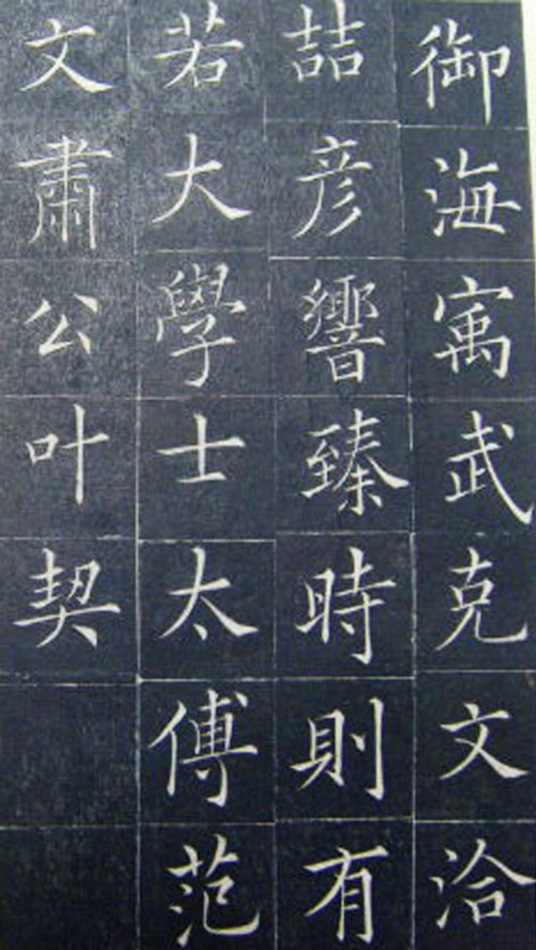 御海寓武克文洽
喆彦響臻時則有
若大學士太傅范
文肅公叶契